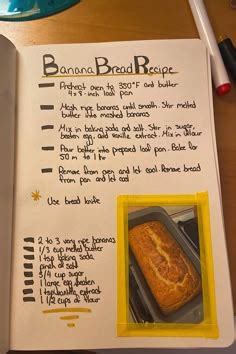 Banana Bread Recipe
Preheat oven to 350°F and butter
4 x 8-inch loaf pan
Mash ripe bananas until smooth. Stir melted
butter into mashed bananas
Mix in baking soda and salt. Stir in sugar,
beaten egg, and vanilla extract. Mix in flour
Pour batter into prepared loaf pan. Bake for
50 m to 1 hr
Remove from oven and let cool. Remove bread
from pan and let cool
Use bread knife
2 to 3 very ripe bananas
1/3 cup melted butter
1 tsp baking soda
pinch of salt
3/4 cup sugar
1 large egg beaten
1 tsp vanilla extract
1 1/2 cups of flour